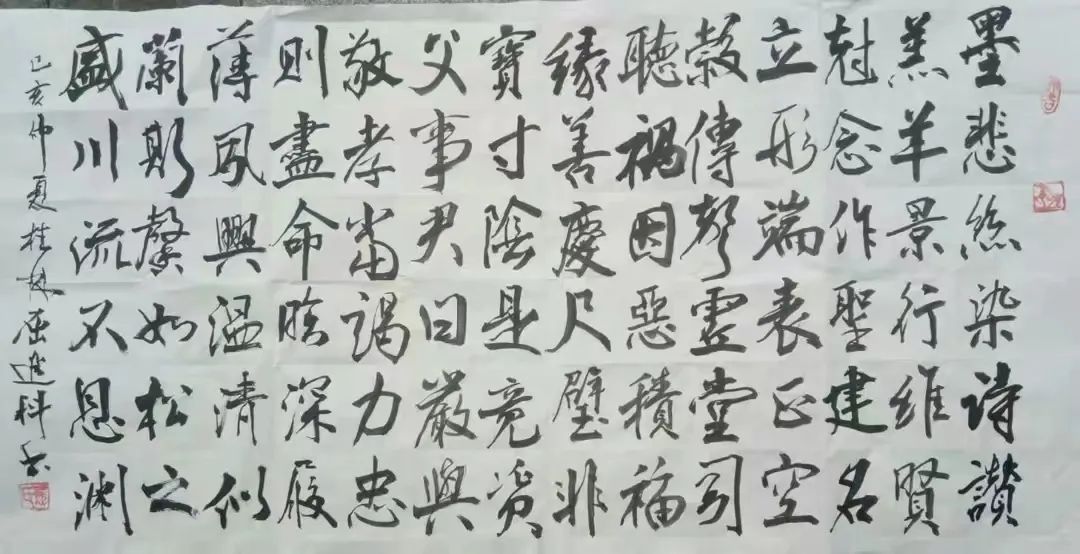 墨悲絲染詩讚
羔羊景行維賢
尅念作聖建名
立形端表正空
榖傳聲虛堂習
聽禍因惡積福
緣善慶尺璧非
寶寸陰是竞資
父事尹曰嚴與
敬孝當竭力忠
則盡命臨深履
薄夙興温清似
蘭斯馨如松之
盛川流不息淵
己亥仲夏桂林屈進科书